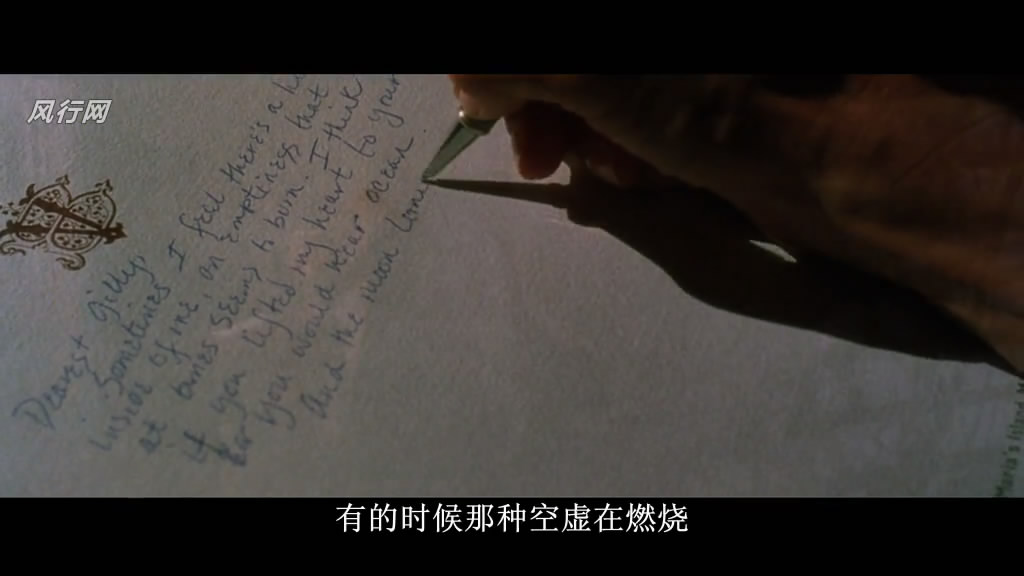 风行网
Dearest Gilly,
Sometimes I feel there's a
inside of me, an emptiness that
at times seems to burn. I think
if you lifted my heart to your
ear you would hear ocean.
And the moon
Maria's Island
有的时候那种空虚在燃烧